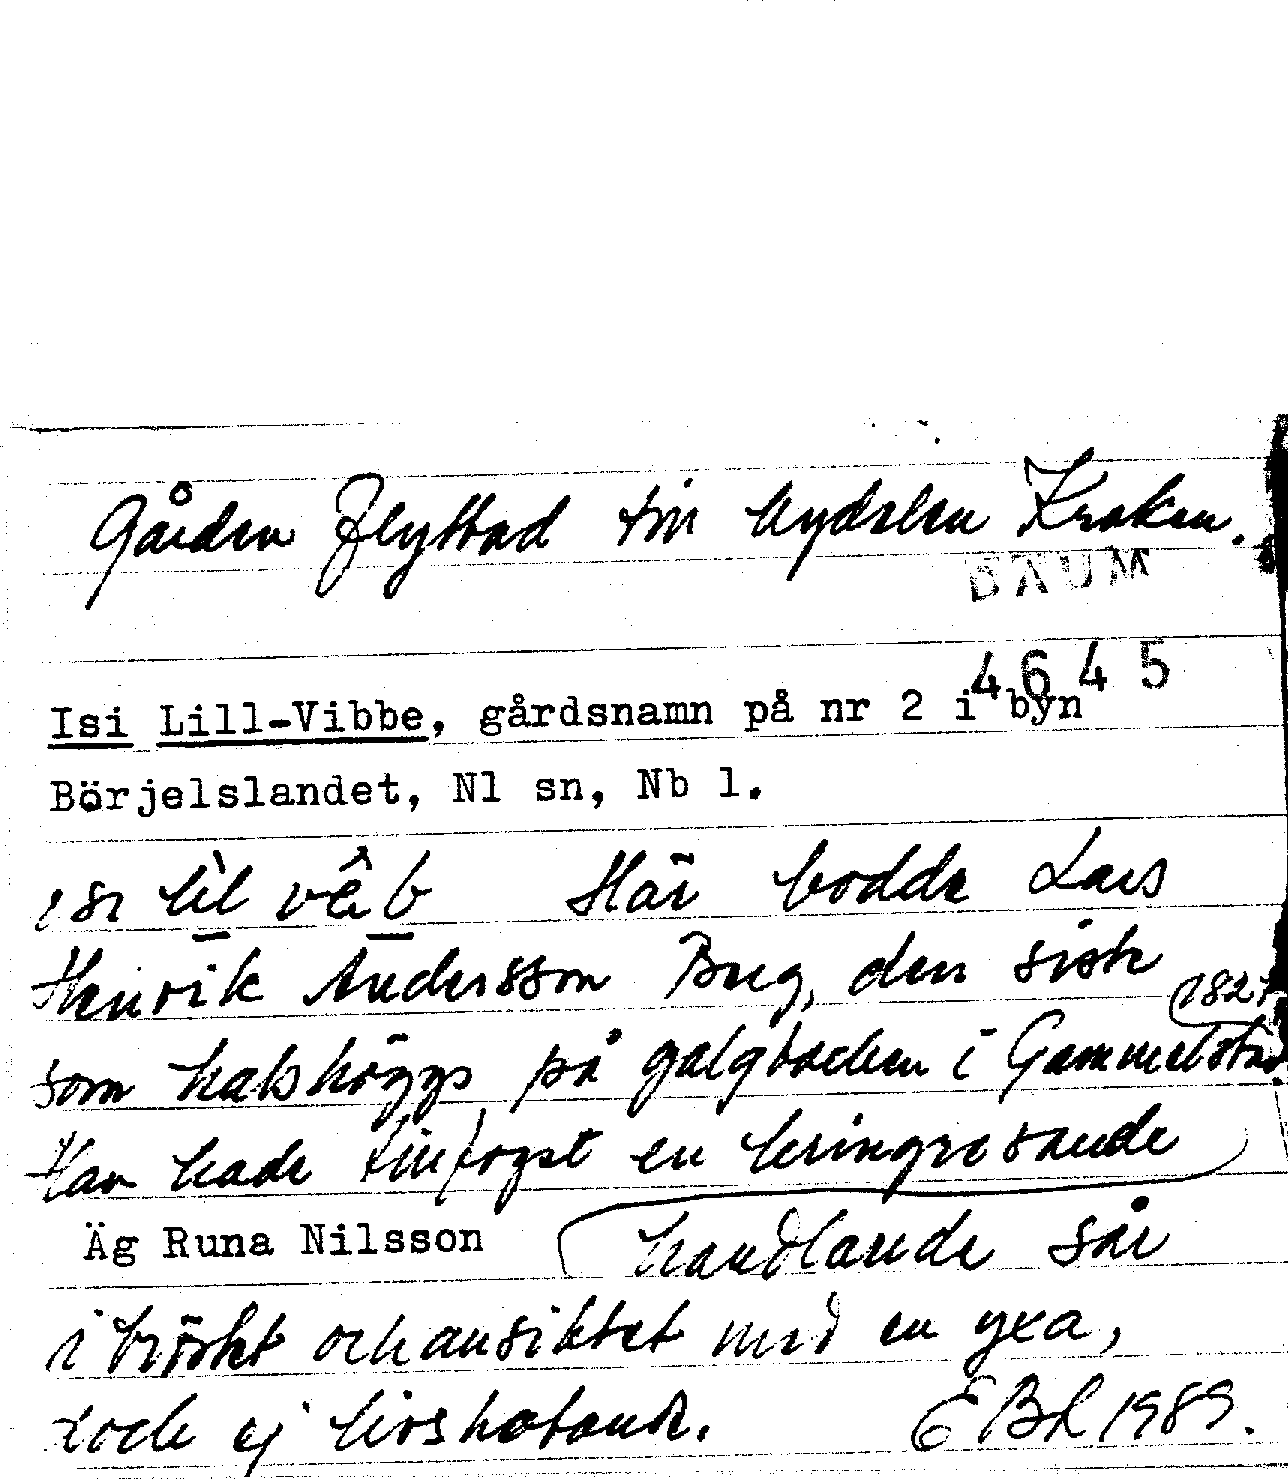 Gården flyttad till bydelen Kroken.
DAUM
4645
Isi Lill-Vibbe, gårdsnamn på nr 2 i byn
Börjelslandet, Nl sn, Nb l.
isi lìl vêb Här bodde Lars
Henrik Andersson Brig, den siste
som halshöggs på galgbacken i Gammelstad
Han hade tillfogat en kringresande
Äg Runa Nilsson handlande sår
i bröstet och ansiktet med en yxa,
dock ej livshotande. EBL 1989.